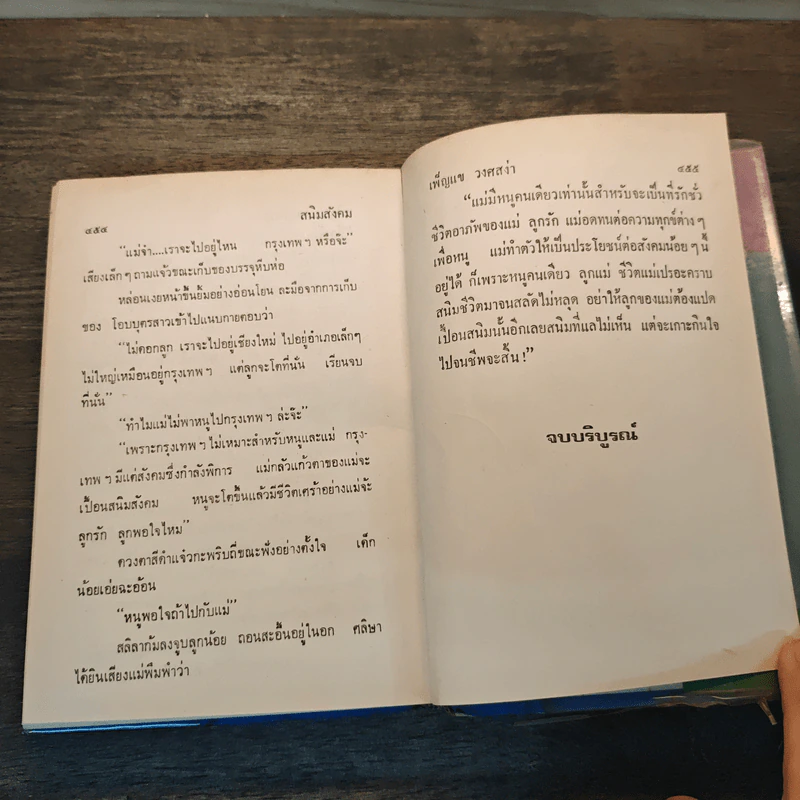 ๔๕๔ สนิมสังคม
“แม่จ๋า....เราจะไปอยู่ไหน กรุงเทพฯ หรือจ๊ะ”
เสียงเล็กๆ ถามแจ้วขณะเก็บของบรรจุหีบห่อ
หล่อนเงยหน้าขึ้นยิ้มอย่างอ่อนโยน ละมือจากการเก็บ
ของ โอบบุตรสาวเข้าไปแนบกายตอบว่า
“ไม่ดอกลูก เราจะไปอยู่เชียงใหม่ ไปอยู่อำเภอเล็กๆ
ไม่ใหญ่เหมือนอยู่กรุงเทพฯ แต่ลูกจะโตที่นั่น เรียนจบ
ที่นั่น”
“ทำไมแม่ไม่พาหนูไปกรุงเทพฯ ล่ะจ๊ะ”
“เพราะกรุงเทพฯ ไม่เหมาะสำหรับหนูและแม่ กรุง-
เทพฯ มีแต่สังคมซึ่งกำลังพิการ แม่กลัวแก้วตาของแม่จะ
เปื้อนสนิมสังคม หนูจะโตขึ้นแล้วมีชีวิตเศร้าอย่างแม่จ้ะ
ลูกรัก ลูกพอใจไหม”
ดวงตาสีดำแจ๋วกะพริบถี่ขณะฟังอย่างตั้งใจ เด็ก
น้อยเอ่ยฉะอ้อน
“หนูพอใจถ้าไปกับแม่”
สลิลาก้มลงจูบลูกน้อย ถอนสะอื้นอยู่ในอก ศลิษา
ได้ยินเสียงแม่พึมพำว่า
เพ็ญแข วงศสง่า ๔๕๕
“แม่มีหนูคนเดียวเท่านั้นสำหรับจะเป็นที่รักชั่ว
ชีวิตอาภัพของแม่ ลูกรัก แม่อดทนต่อความทุกข์ต่างๆ
เพื่อหนู แม่ทำตัวให้เป็นประโยชน์ต่อสังคมน้อยๆ นี้
อยู่ได้ ก็เพราะหนูคนเดียว ลูกแม่ ชีวิตแม่เปรอะคราบ
สนิมชีวิตมาจนสลัดไม่หลุด อย่าให้ลูกของแม่ต้องแปด
เปื้อนสนิมนั้นอีกเลยสนิมที่แลไม่เห็น แต่จะเกาะกินใจ
ไปจนชีพจะสิ้น !”
จบบริบูรณ์